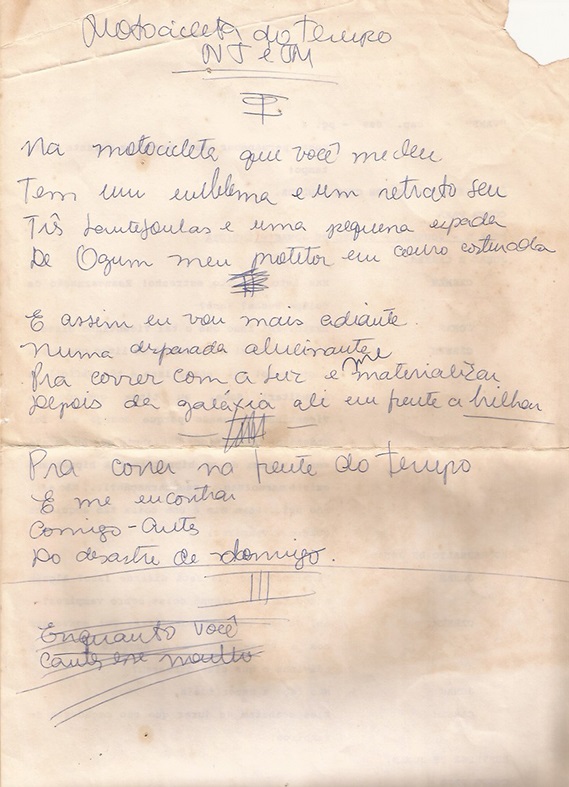 Motocicleta do tempo
NJ e JM
I
Na motocicleta que você me deu
Tem um emblema e um retrato seu
Três lantejoulas e uma pequena espada
De Ogum meu protetor em couro costurada
II
E assim eu vou mais adiante
Numa disparada alucinante
Pra correr com a luz e me materializar
Depois da galáxia ali em frente a brilhar
III
Pra correr na frente do tempo
E me encontrar
Comigo - antes
Do desastre de domigo.
III
Enquanto você
Canta esse